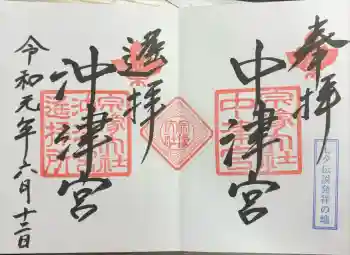 奉拝
中津宮
宗像大社
中津宮
七夕伝説発祥の地
遥拝
沖津宮
宗像大社
沖津宮
遥拝所
令和元年六月十二日